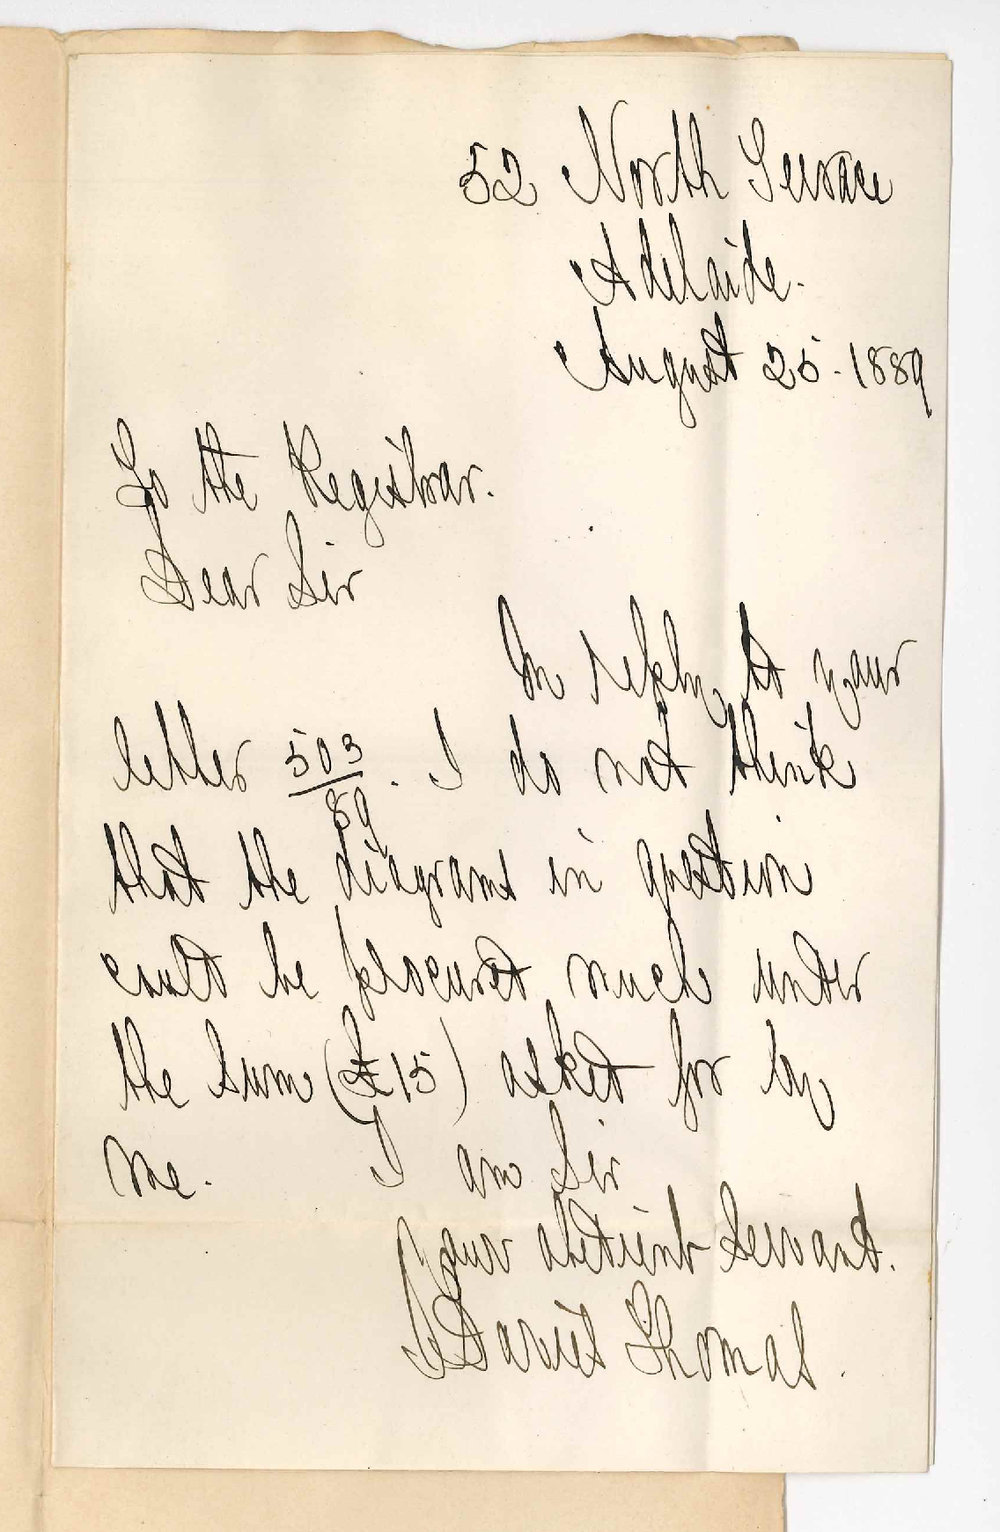 52 North Terrace
Adelaide.
August 25. 1889
To the Registrar.
Dear Sir
In reply to your
letter 503/89. I do not think
that the diagrams in question
could be procured much under
the sum (£15) asked for by
me. I am Sir
Your obedient Servant.
J Davies Thomas.